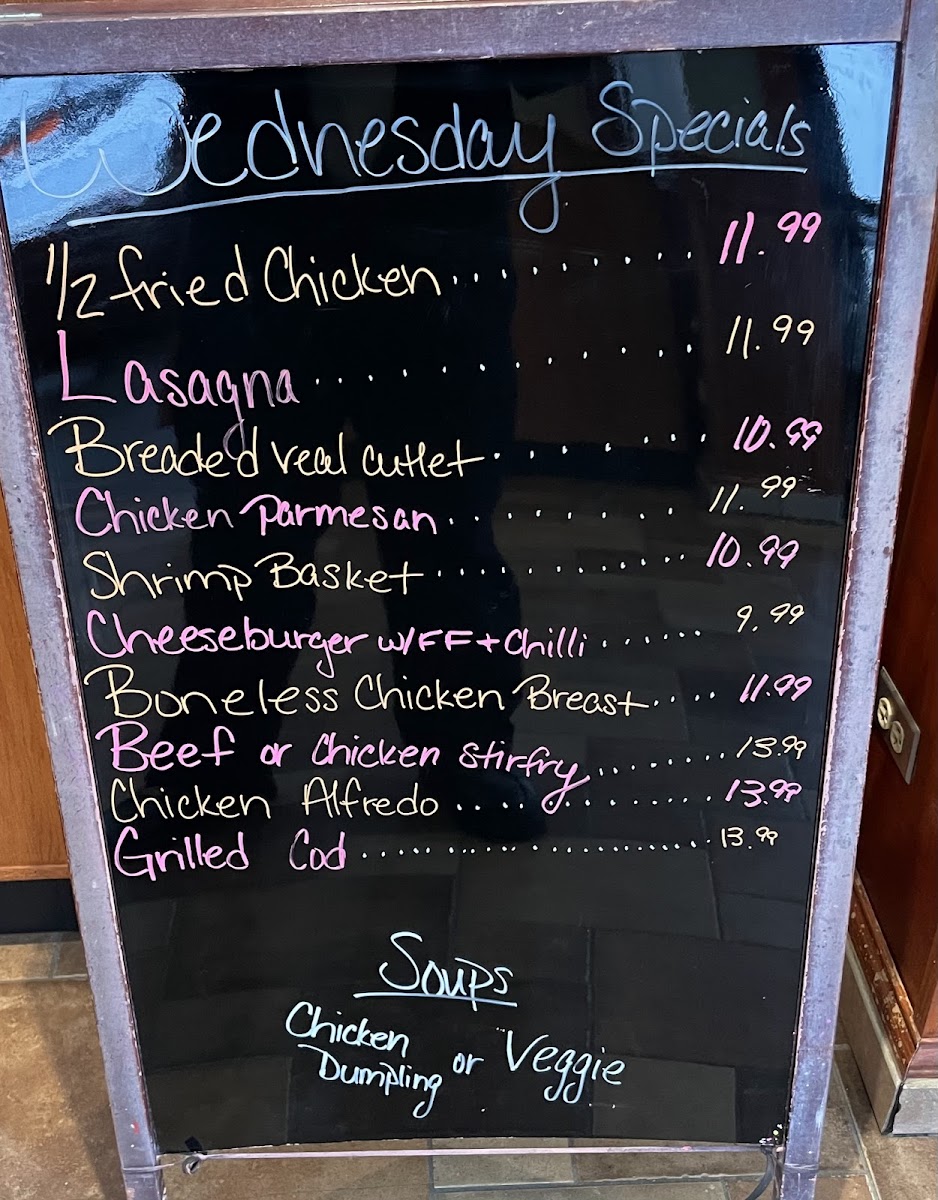 Wednesday Specials
1/2 fried Chicken.......... 11.99
Lasagna.......... 11.99
Breaded veal cutlet........ 10.99
Chicken Parmesan......... 11.99
Shrimp Basket............ 10.99
Cheeseburger w/FF + Chilli...... 9.99
Boneless Chicken Breast.... 11.99
Beef or Chicken stirfry......... 13.99
Chicken Alfredo.............. 13.99
Grilled Cod.............................. 13.99
Soups
Chicken Dumpling or Veggie